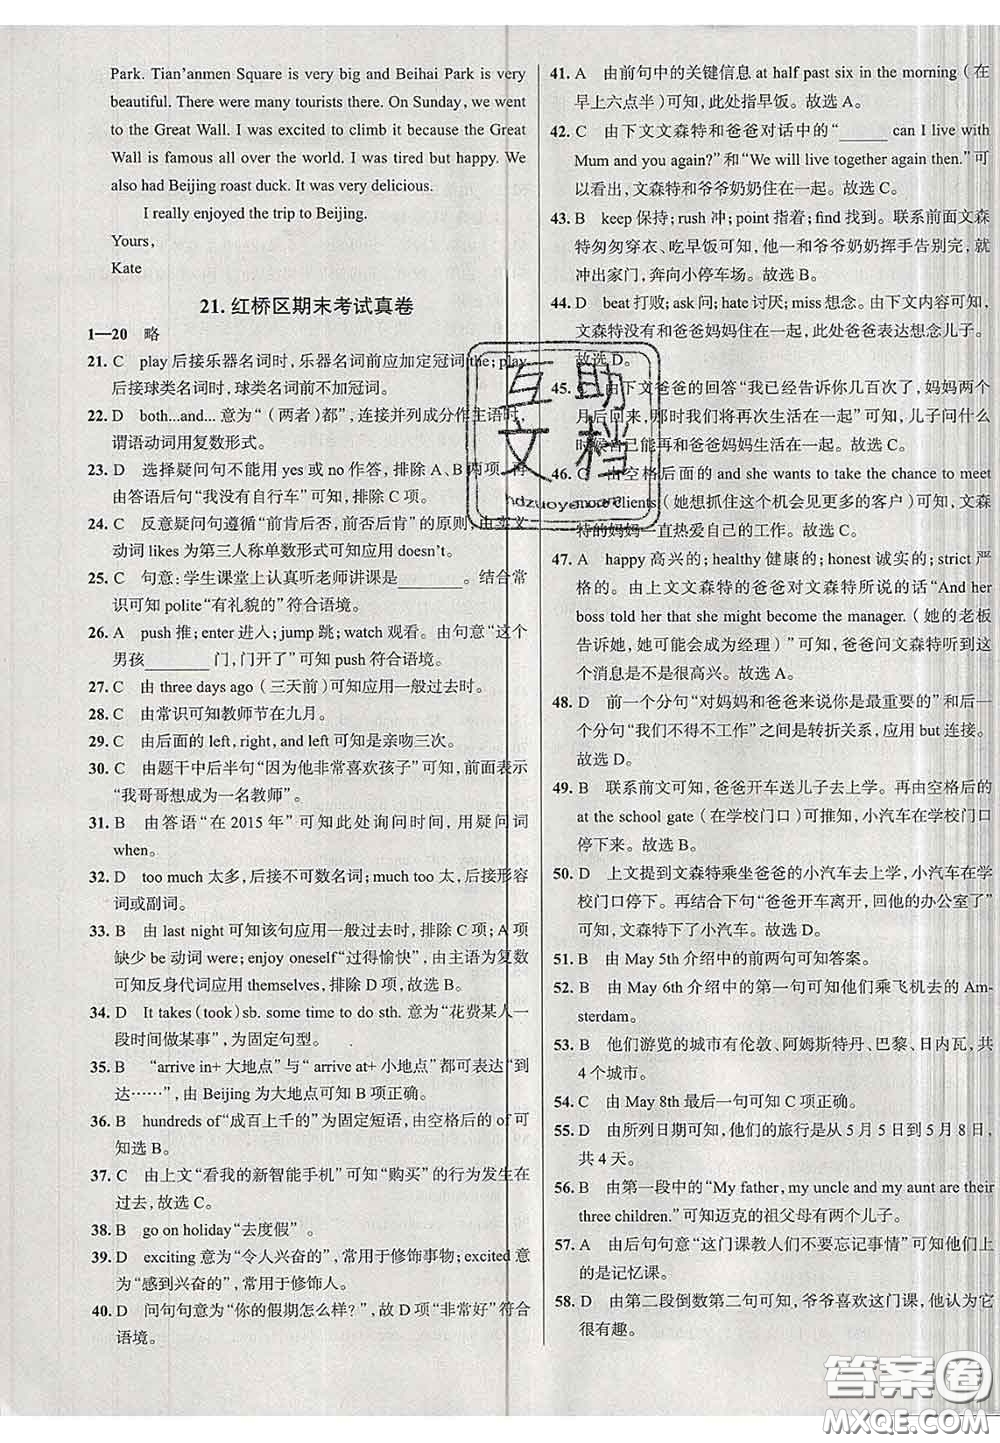 Park. Tian'anmen Square is very big and Beihai Park is very
beautiful. There were many tourists there. On Sunday, we went
to the Great Wall. I was excited to climb it because the Great
Wall is famous all over the world. I was tired but happy. We
also had Beijing roast duck. It was very delicious.
I really enjoyed the trip to Beijing.
Yours,
Kate
21. 红桥区期末考试真卷
1—20 略
21. C play 后接乐器名词时,乐器名词前应加定冠词 the; play
后接球类名词时,球类名词前不加冠词。
22. D both...and... 意为“(两者)都”,连接并列成分作主语时,
谓语动词用复数形式。
23. D 选择疑问句不能用 yes 或 no 作答,排除 A、B 两项,再
由答语后句“我没有自行车”可知,排除 C 项。
24. C 反意疑问句遵循“前肯后否,前否后肯”的原则,由实义
动词 likes 为第三人称单数形式可知应用 doesn't。
25. C 句意:学生课堂上认真听老师讲课是________。结合常
识可知 polite“有礼貌的”符合语境。
26. A push 推; enter 进入; jump 跳; watch 观看。由句意“这个
男孩________门,门开了”可知 push 符合语境。
27. C 由 three days ago (三天前)可知应用一般过去时。
28. C 由常识可知教师节在九月。
29. C 由后面的 left, right, and left 可知是亲吻三次。
30. C 由题干中后半句“因为他非常喜欢孩子”可知,前面表示
“我哥哥想成为一名教师”。
31. B 由答语“在 2015 年”可知此处询问时间,用疑问词
when。
32. D too much 太多,后接不可数名词; much too 太,后接形容
词或副词。
33. B 由 last night 可知该句应用一般过去时,排除 C 项; A 项
缺少 be 动词 were; enjoy oneself“过得愉快”,由主语为复数
可知反身代词应用 themselves,排除 D 项,故选 B。
34. D It takes (took) sb. some time to do sth. 意为“花费某人一
段时间做某事”,为固定句型。
35. B “arrive in+ 大地点”与“ arrive at+ 小地点”都可表达“到
达……”,由 Beijing 为大地点可知 B 项正确。
36. B hundreds of“成百上千的”为固定短语,由空格后的 of 可
知选 B。
37. C 由上文“看我的新智能手机”可知“购买”的行为发生在
过去,故选 C。
38. B go on holiday“去度假”。
39. D exciting 意为“令人兴奋的”,常用于修饰事物; excited 意为
“感到兴奋的”,常用于修饰人。
40. D 问句句意为“你的假期怎么样?”,故 D 项“非常好”符合
语境。
41. A 由前句中的关键信息 at half past six in the morning (在
早上六点半)可知,此处指早饭。故选 A。
42. C 由下文文森特和爸爸对话中的“________ can I live with
Mum and you again?”和“We will live together again then.”可
以看出,文森特和爷爷奶奶住在一起。故选 C。
43. B keep 保持; rush 冲; point 指着; find 找到。联系前面文森
特匆匆穿衣、吃早饭可知,他一和爷爷奶奶挥手告别完,就
冲出家门,奔向小停车场。故选 B。
44. D beat 打败; ask 问; hate 讨厌; miss 想念。由下文内容可知,
文森特没有和爸爸妈妈住在一起,此处爸爸表达想念儿子。
故选 D。
45. C 由下文爸爸的回答“我已经告诉你几百次了,妈妈两个
月后回来,那时我们将再次生活在一起”可知,儿子问什么
时候自己能再和爸爸妈妈生活在一起。故选 C。
46. C 由空格后面的 and she wants to take the chance to meet
more clients (她想抓住这个机会见更多的客户)可知,文森
特的妈妈一直热爱自己的工作。故选 C。
47. A happy 高兴的; healthy 健康的; honest 诚实的; strict 严
格的。由上文文森特的爸爸对文森特所说的话“And her
boss told her that she might become the manager. (她的老板
告诉她,她可能会成为经理)”可知,爸爸问文森特听到这
个消息是不是很高兴。故选 A。
48. D 前一个分句“对妈妈和爸爸来说你是最重要的”和后一
个分句“我们不得不工作”之间是转折关系,应用 but 连接。
故选 D。
49. B 联系前文可知,爸爸开车送儿子去上学。再由空格后的
at the school gate (在学校门口)可推知,小汽车在学校门口
停下来。故选 B。
50. D 上文提到文森特乘坐爸爸的小汽车去上学,小汽车在学
校门口停下。再结合下句“爸爸开车离开,回他的办公室了”
可知,文森特下了小汽车。故选 D。
51. B 由 May 5th 介绍中的前两句可知答案。
52. B 由 May 6th 介绍中的第一句可知他们乘飞机去的 Am-
sterdam。
53. B 他们游览的城市有伦敦、阿姆斯特丹、巴黎、日内瓦,共
4 个城市。
54. C 由 May 8th 最后一句可知 C 项正确。
55. D 由所列日期可知,他们的旅行是从 5 月 5 日到 5 月 8 日,
共 4 天。
56. B 由第一段中的“My father, my uncle and my aunt are their
three children.”可知迈克的祖父母有两个儿子。
57. A 由后句句意“这门课教人们不要忘记事情”可知他们上
的是记忆课。
58. D 由第二段倒数第二句可知,爷爷喜欢这门课,他认为它
很有趣。
互助
文档
hdzuoye.com
答案圈
MXQE.COM